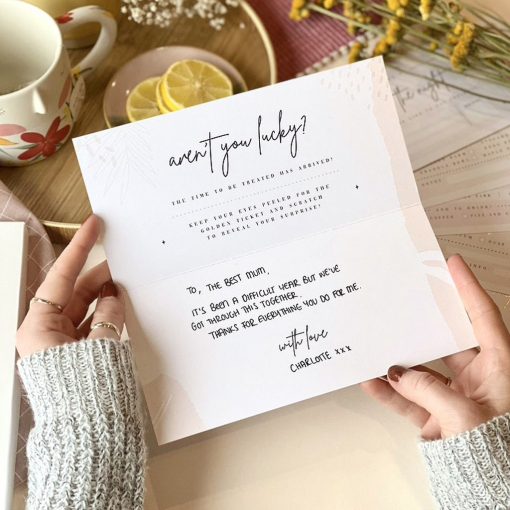 aren't you lucky?
THE TIME TO BE TREATED HAS ARRIVED!
KEEP YOUR EYES PEELED FOR THE
GOLDEN TICKET AND SCRATCH
TO REVEAL YOUR SURPRISE!
TO, THE BEST MUM,
IT'S BEEN A DIFFICULT YEAR BUT WE'VE
GOT THROUGH THIS TOGETHER.
THANKS FOR EVERYTHING YOU DO FOR ME.
with love
CHARLOTTE xxx
the night